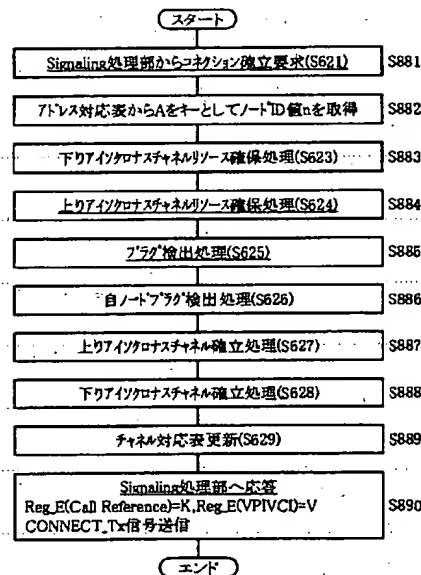 スタート
Signaling処理部からコネクション確立要求(S621)
S881
アドレス対応表からAをキーとしてノードID値nを取得
S882
下りアイソクロナスチャネルリソース確保処理(S623)
S883
上りアイソクロナスチャネルリソース確保処理(S624)
S884
プラグ検出処理(S625)
S885
自ノードプラグ検出処理(S626)
S886
上りアイソクロナスチャネル確立処理(S627)
S887
下りアイソクロナスチャネル確立処理(S628)
S888
チャネル対応表更新(S629)
S889
Signaling処理部へ応答
Reg_E(Call Reference)=K,Reg_E(VPIVCI)=V
CONNECT_Tx信号送信
S890
エンド